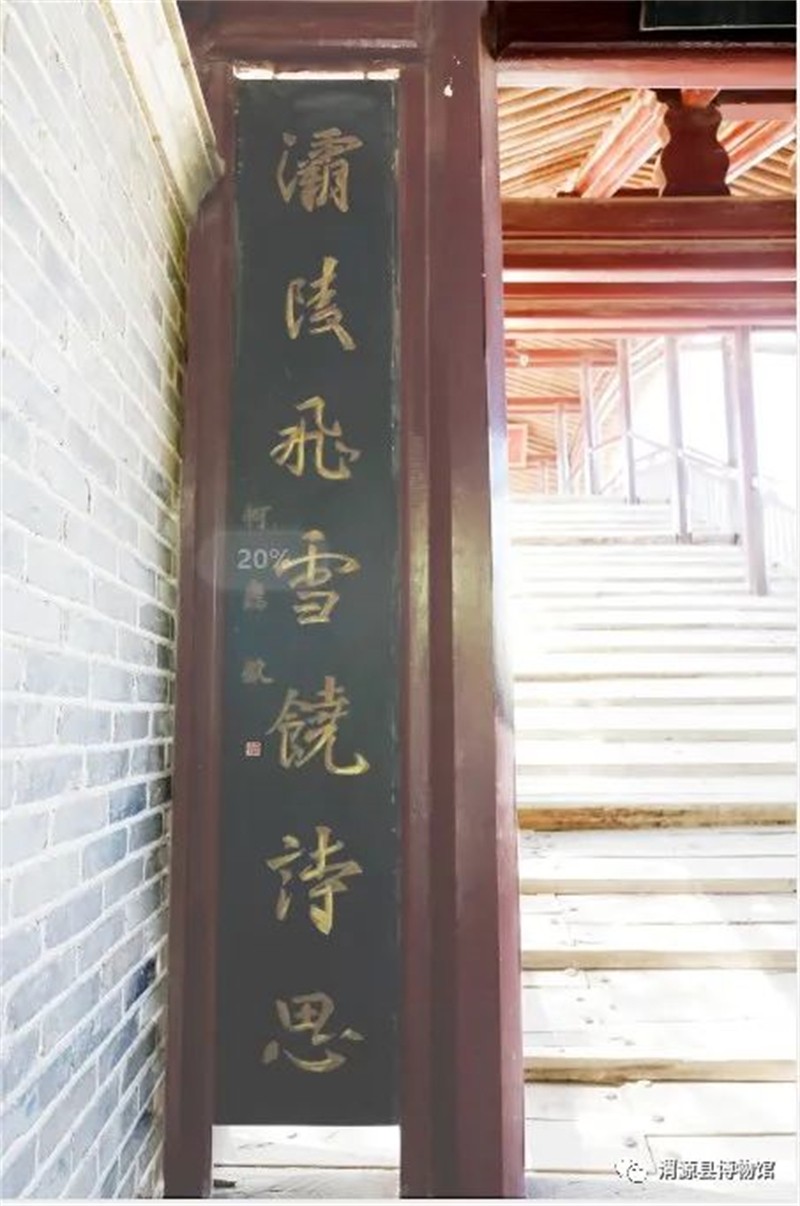 灞陵飛雪饒詩思
20%
渭源县博物馆